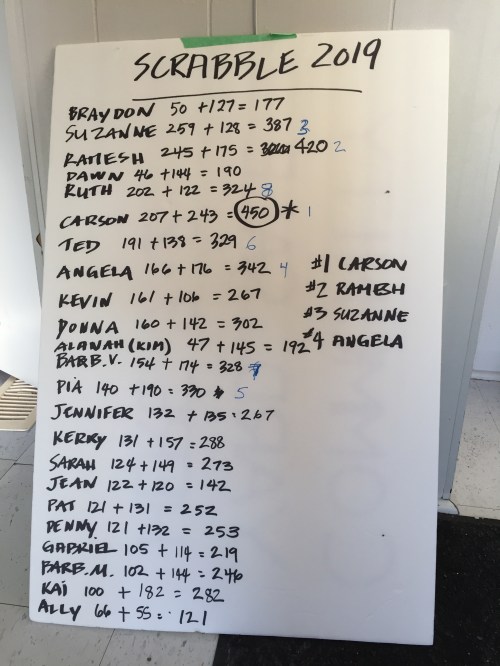 SCRABBLE 2019
BRAYDON 50 + 127 = 177
SUZANNE 259 + 128 = 387 3
RAMESH 245 + 175 = 420 2
DAWN 46 + 144 = 190
RUTH 202 + 122 = 324 8
CARSON 207 + 243 = 450 * 1
TED 191 + 138 = 329 6
ANGELA 166 + 176 = 342 4
#1 CARSON
KEVIN 161 + 106 = 267
#2 RAMESH
DONNA 160 + 142 = 302
#3 SUZANNE
ALANAH (KIM) 47 + 145 = 192
#4 ANGELA
BARB.V. 154 + 174 = 328 7
PIA 140 + 190 = 330 5
JENNIFER 132 + 135 = 267
KERRY 131 + 157 = 288
SARAH 124 + 149 = 273
JEAN 122 + 120 = 142
PAT 121 + 131 = 252
PENNY 121 + 132 = 253
GABRIEL 105 + 114 = 219
BARB.M. 102 + 144 = 246
KAI 100 + 182 = 282
ALLY 66 + 55 = 121